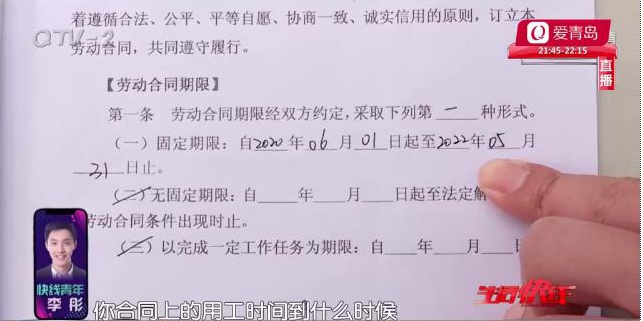 着遵循合法、公平、平等自愿、协商一致、诚实信用的原则，订立本
QTV-2
劳动合同，共同遵守履行。
爱青岛
21:45-22:15
直播
【劳动合同期限】
第一条 劳动合同期限经双方约定，采取下列第 一 种形式。
（一）固定期限：自2020年06月01日起至2022年05月
31日止。
（二）无固定期限：自 年 月 日起至法定解
劳动合同条件出现时止。
（三）以完成一定工作任务为期限：自 年 月 日
快线青年
李彤
生活快线
你合同上的用工时间到什么时候